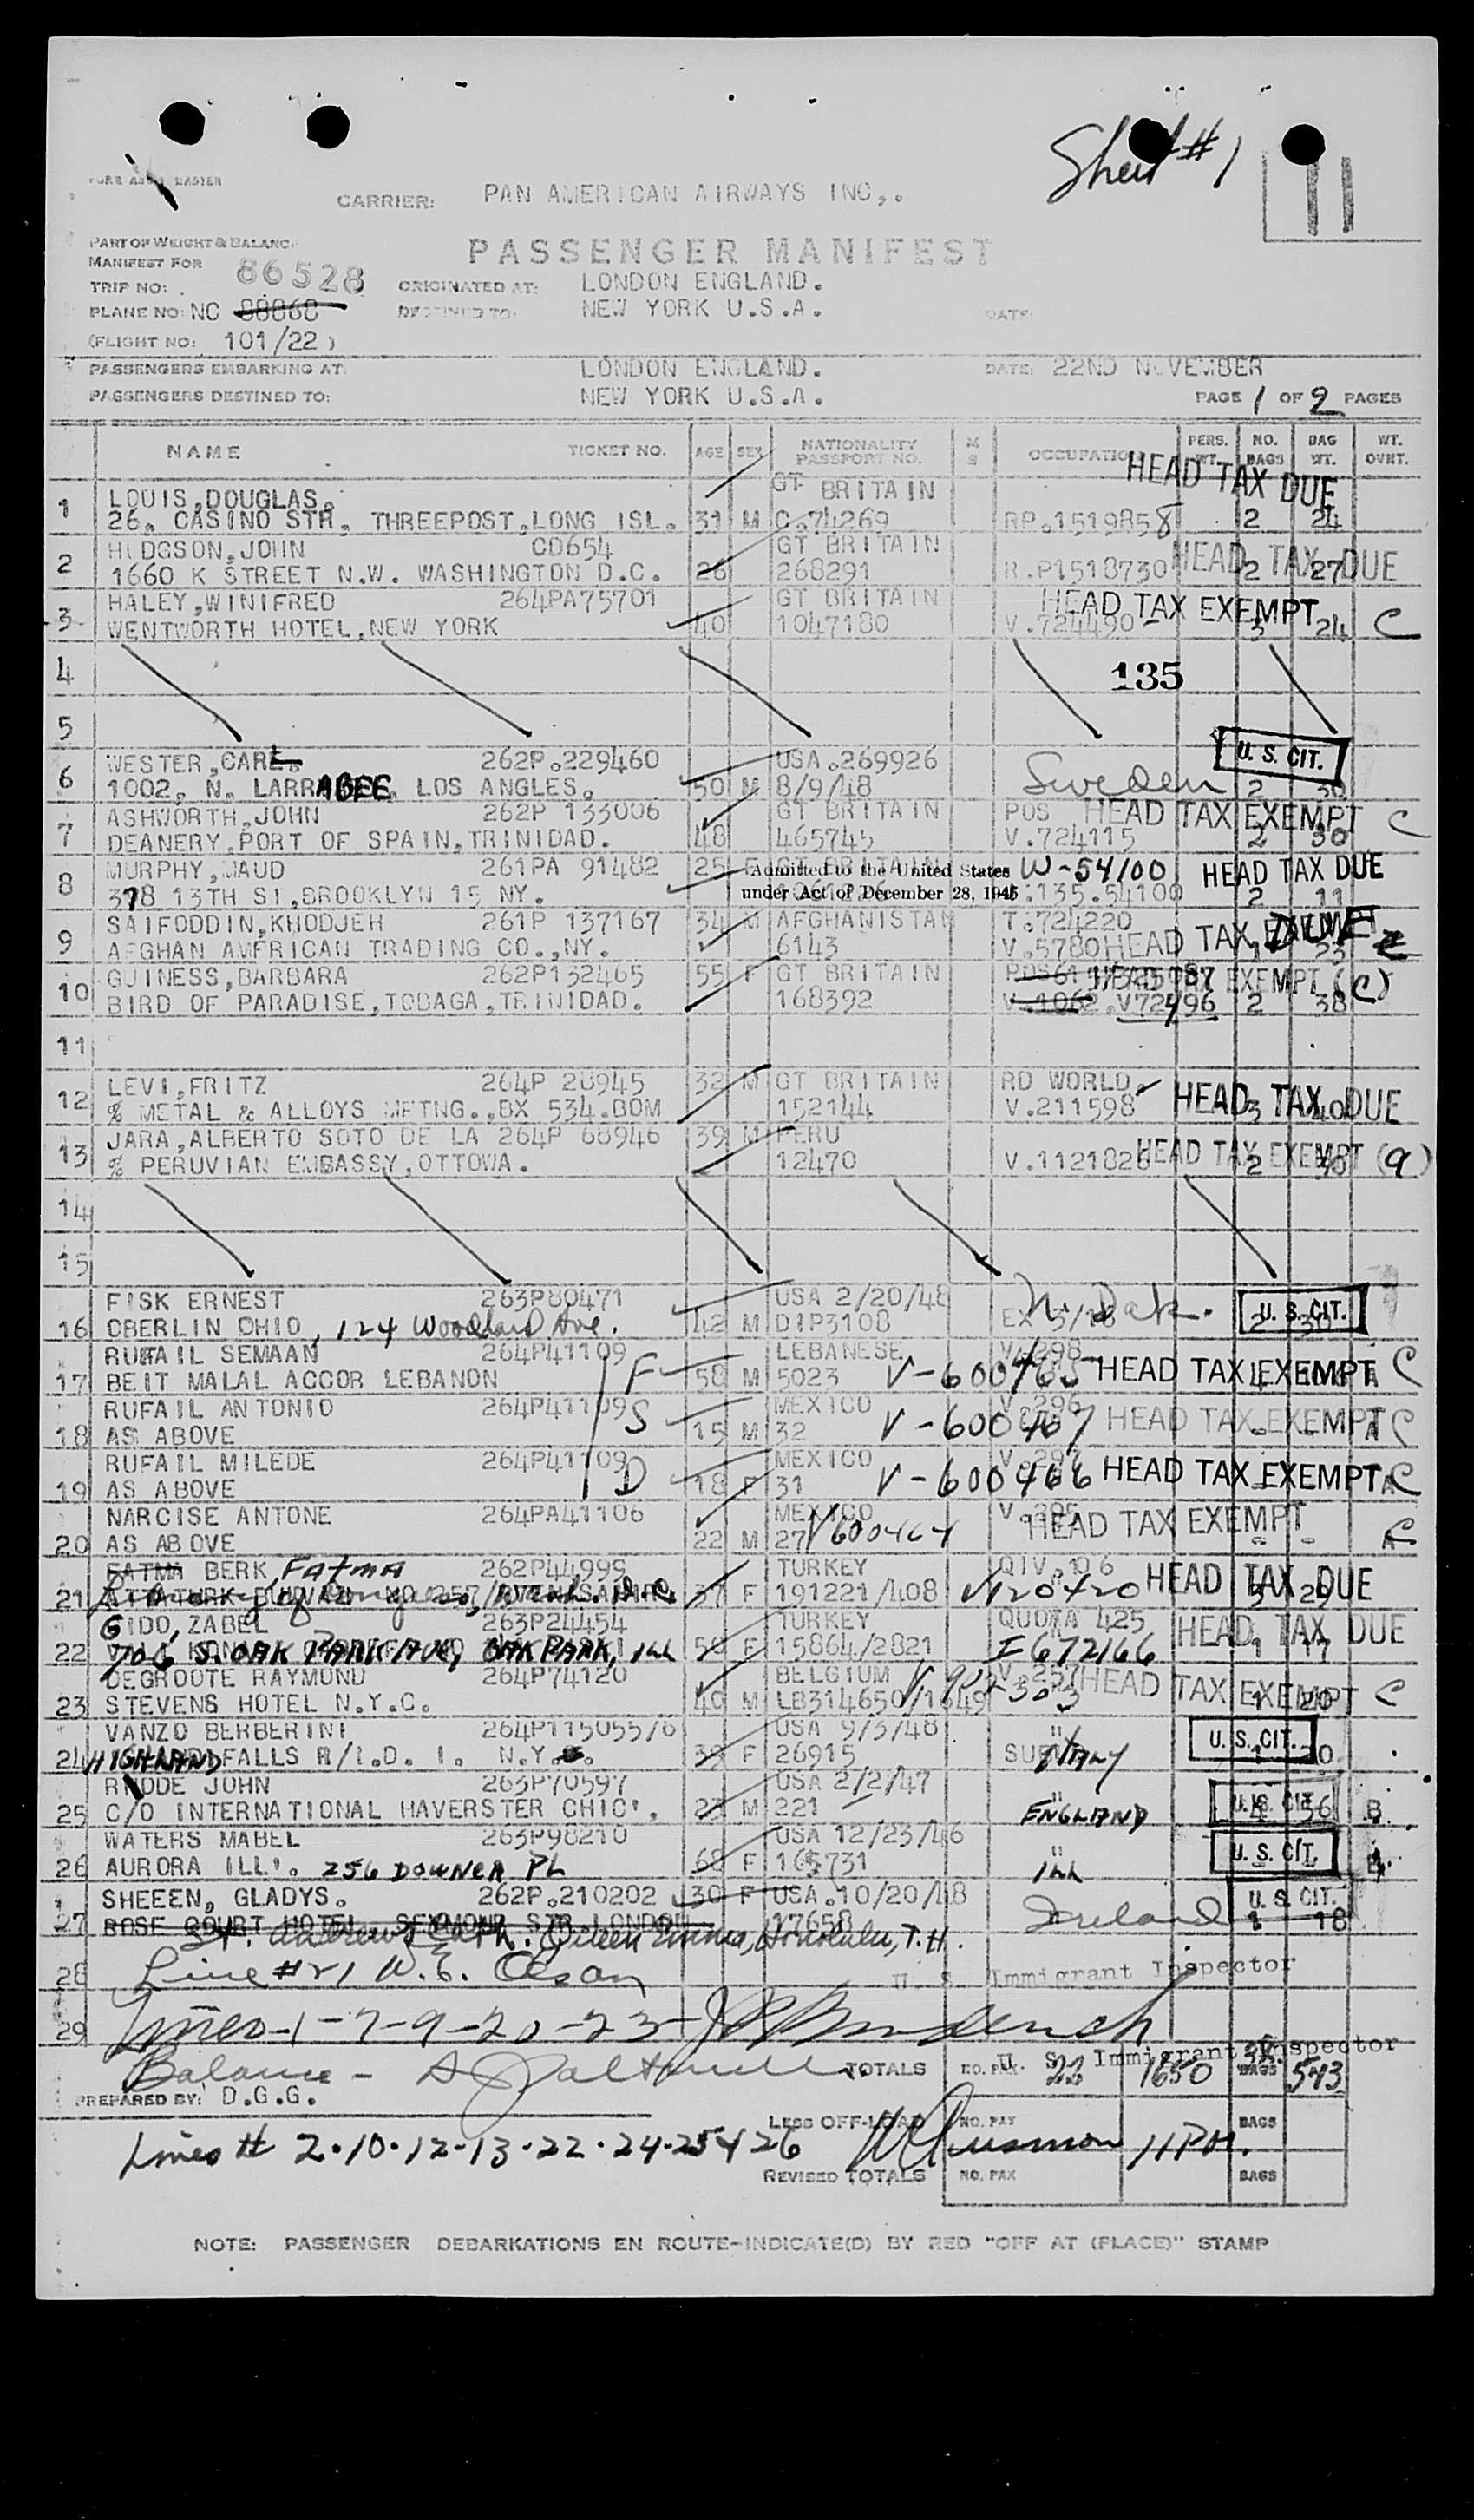 Sheet #1
11
CARRIER: PAN AMERICAN AIRWAYS INC,.
PART OF WEIGHT & BALANCE
PASSENGER MANIFEST
MANIFEST FOR
TRIP NO: 86528 ORIGINATED AT: LONDON ENGLAND.
PLANE NO: NC 88868 DESTINED TO: NEW YORK U.S.A. DATE:
(FLIGHT NO: 101/22)
PASSENGERS EMBARKING AT: LONDON ENGLAND. DATE: 22ND NOVEMBER
PASSENGERS DESTINED TO: NEW YORK U.S.A. PAGE 1 OF 2 PAGES
NAME TICKET NO. AGE SEX NATIONALITY PASSPORT NO. M S OCCUPATION PERS. WT. NO. BAGS BAG WT. WT. OVRT.
HEAD TAX DUE
LOUIS,DOUGLAS. GT BRITAIN
1 26. CASINO STR, THREEPOST,LONG ISL. 31 M C.74269 RP.1519858 2 24
HUDGSON,JOHN CD654 GT BRITAIN HEAD TAX DUE
2 1660 K STREET N.W. WASHINGTON D.C. 26 268291 R.P1518730 2 27
HALEY,WINIFRED 264PA75701 GT BRITAIN HEAD TAX EXEMPT
3 WENTWORTH HOTEL,NEW YORK 40 1047180 V.724490 3 24 C
4 135
5
WESTER,CARL. 262P.229460 USA.269926 U. S. CIT.
6 1002, N. LARRABEE LOS ANGLES. 50 M 8/9/48 Sweden 2 30
ASHWORTH,JOHN 262P 133006 GT BRITAIN POS HEAD TAX EXEMPT C
7 DEANERY,PORT OF SPAIN,TRINIDAD. 48 465745 V.724115 2 30
MURPHY,MAUD 261PA 91482 25 F GT BRITAIN Admitted to the United States W-54100 HEAD TAX DUE
8 378 13TH ST,BROOKLYN 15 NY. under Act of December 28, 1945 :135.54100 2 11
SAIFODDIN,KHODJEH 261P 137167 34 M AFGHANISTAN T.724220
9 AFGHAN AMERICAN TRADING CO.,NY. 6143 V.5780 HEAD TAX DUE 23
GUINESS,BARBARA 262P132465 55 F GT BRITAIN HEAD TAX EXEMPT (C)
10 BIRD OF PARADISE,TOBAGA,TRINIDAD. 168392 V.1062 .V72496 2 38
11
LEVI,FRITZ 264P 28945 32 M GT BRITAIN RD WORLD. HEAD TAX DUE
12 % METAL & ALLOYS MFTNG.,BX 534.BOM 152144 V.211598 3 40
JARA,ALBERTO SOTO DE LA 264P 68946 39 M PERU HEAD TAX EXEMPT (a)
13 % PERUVIAN EMBASSY,OTTOWA. 12470 V.1121826 2 40
14
15
FISK ERNEST 263P80471 USA 2/20/48 N. Dak. U. S. CIT.
16 OBERLIN OHIO, 124 Woodland Ave. 42 M DIP3108 EX 3/18 2 30
RUFAIL SEMAAN 264P41109 F LEBANESE V.298
17 BEIT MALAL ACCOR LEBANON 58 M 5023 V-600465 HEAD TAX EXEMPT C
RUFAIL ANTONIO 264P41109 S MEXICO V.296
18 AS ABOVE 15 M 32 V-600467 HEAD TAX EXEMPT C
RUFAIL MILEDE 264P41109 D MEXICO V.297
19 AS ABOVE 18 F 31 V-600466 HEAD TAX EXEMPT C
NARCISE ANTONE 264PA41106 MEXICO V.295
20 AS ABOVE 22 M 27 V600464 HEAD TAX EXEMPT C
FATMA BERK, FATMA 262P44999 TURKEY QIV.106 HEAD TAX DUE
21 Library of Congress, Wash. D.C. 37 F 191221/408 V120420 3 29
GIDO, ZABEL 263P24454 TURKEY QUOTA 425 HEAD TAX DUE
22 706 S. OAK PARK AVE, OAK PARK, ILL 50 F 15864/2821 I-672166 1 17
DEGROOTE RAYMOND 264P74120 BELGIUM V.257 HEAD TAX EXEMPT C
23 STEVENS HOTEL N.Y.C. 40 M LB314650/1649 1 20
VANZO BERBERINI 264P115055/6 USA 9/3/48 " U. S. CIT.
24 HIGHLAND FALLS R/I.D. 1. N.Y. 39 F 26915 ITALY 1 20
RHODE JOHN 263P70597 USA 2/2/47 " U. S. CIT.
25 C/O INTERNATIONAL HAVERSTER CHIC'. 23 M 221 ENGLAND 4 36 B
WATERS MABEL 263P98210 USA 12/23/46 " U. S. CIT.
26 AURORA ILL'. 256 DOWNER PL 68 F 165731 ILL
SHEEEN, GLADYS. 262P.210202 30 F USA.10/20/48 Ireland U. S. CIT.
27 ROSE COURT HOTEL, SEYMOUR STR LONDON 17658 1 18
St. Andrews Cath. Queen Emma, Honolulu, T.H.
28 Line #21 W. E. Olson U. S. Immigrant Inspector
29 Lines-1-7-9-20-23-
U. S. Immigrant Inspector
Balance - TOTALS NO. PAX 22 1650 38 BAGS 543
PREPARED BY: D.G.G.
LESS OFF-LOAD NO. PAY BAGS
Lines # 2·10·12-13·22·24·25 & 26 11PM.
REVISED TOTALS NO. PAX BAGS
NOTE: PASSENGER DEBARKATIONS EN ROUTE-INDICATE(D) BY RED "OFF AT (PLACE)" STAMP